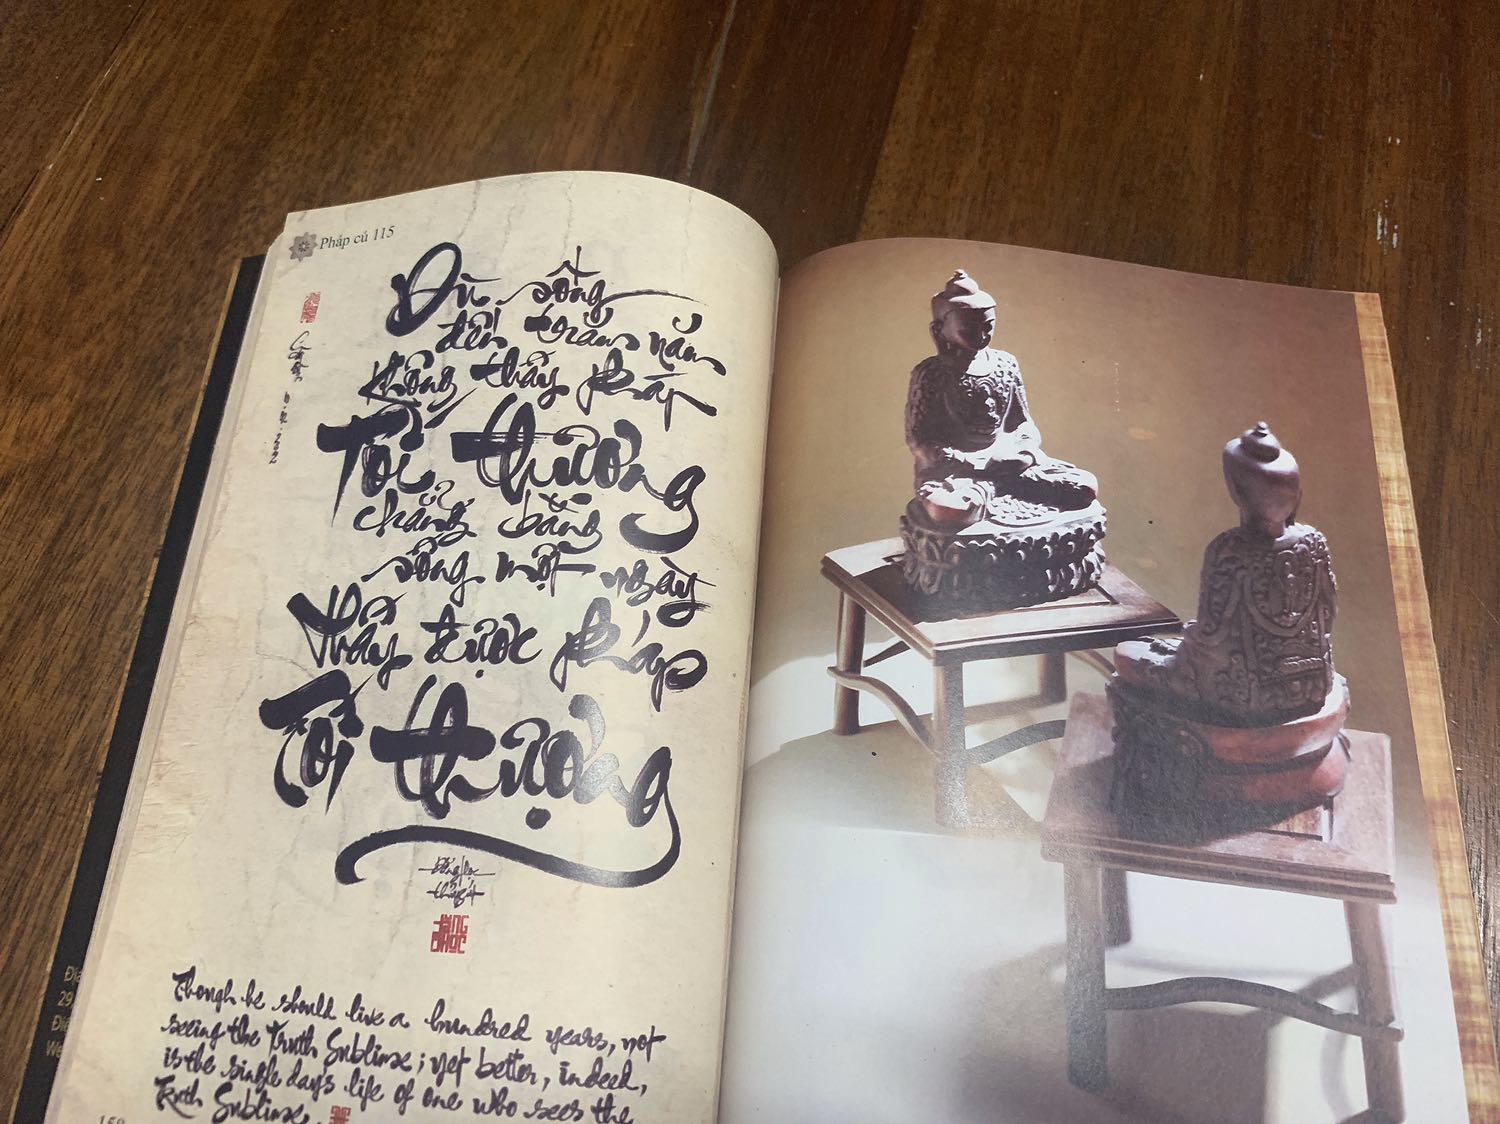 Pháp cú 115
Dù sống
đến trăm năm
không thấy pháp
Tối thượng
chẳng bằng
sống một ngày
thấy được pháp
Tối thượng
Though he should live a hundred years, not
seeing the Truth Sublime; yet better, indeed,
is the single day's life of one who sees the
Truth Sublime.
158